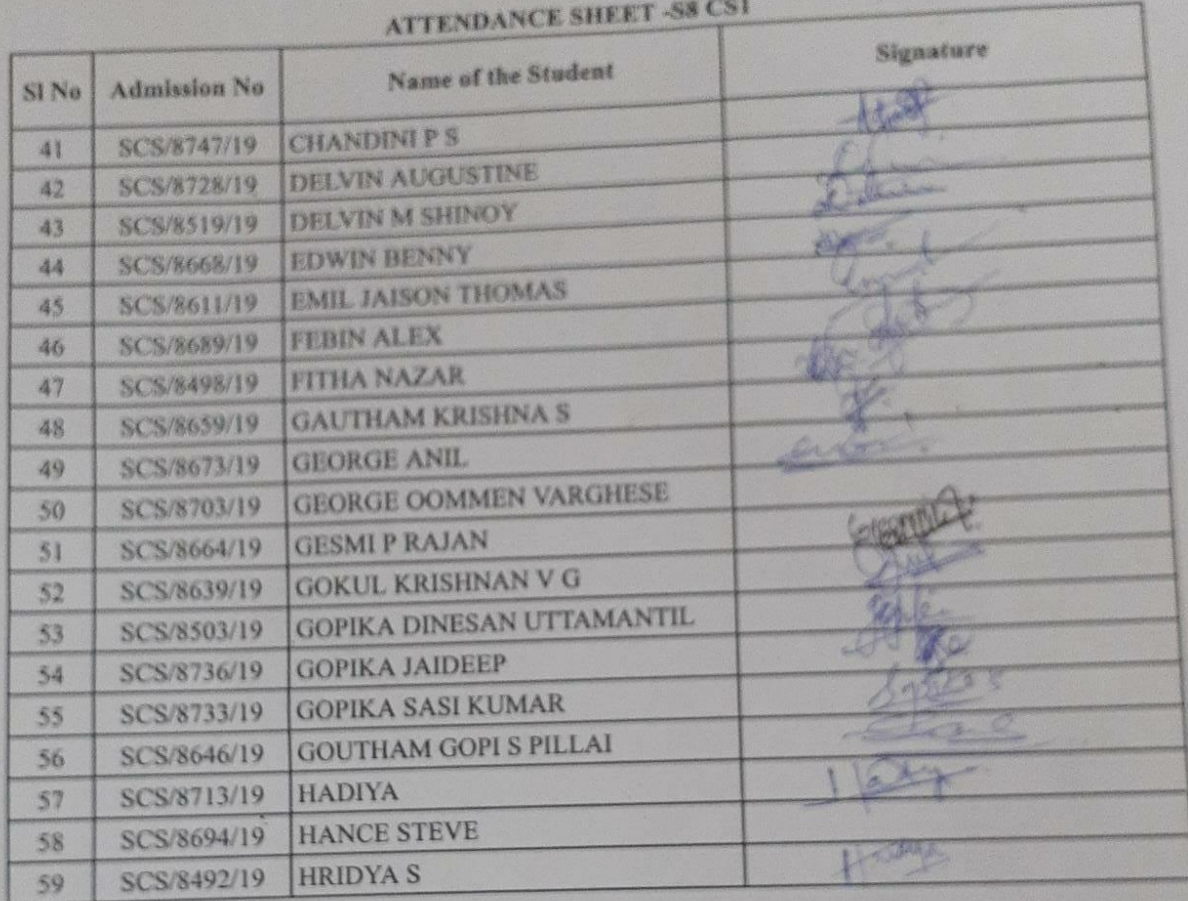 ATTENDANCE SHEET -S8 CS1
Sl No Admission No Name of the Student Signature
41 SCS/8747/19 CHANDINI P S
42 SCS/8728/19 DELVIN AUGUSTINE
43 SCS/8519/19 DELVIN M SHINOY
44 SCS/8668/19 EDWIN BENNY
45 SCS/8611/19 EMIL JAISON THOMAS
46 SCS/8689/19 FEBIN ALEX
47 SCS/8498/19 FITHA NAZAR
48 SCS/8659/19 GAUTHAM KRISHNA S
49 SCS/8673/19 GEORGE ANIL
50 SCS/8703/19 GEORGE OOMMEN VARGHESE
51 SCS/8664/19 GESMI P RAJAN
52 SCS/8639/19 GOKUL KRISHNAN V G
53 SCS/8503/19 GOPIKA DINESAN UTTAMANTIL
54 SCS/8736/19 GOPIKA JAIDEEP
55 SCS/8733/19 GOPIKA SASI KUMAR
56 SCS/8646/19 GOUTHAM GOPI S PILLAI
57 SCS/8713/19 HADIYA
58 SCS/8694/19 HANCE STEVE
59 SCS/8492/19 HRIDYA S